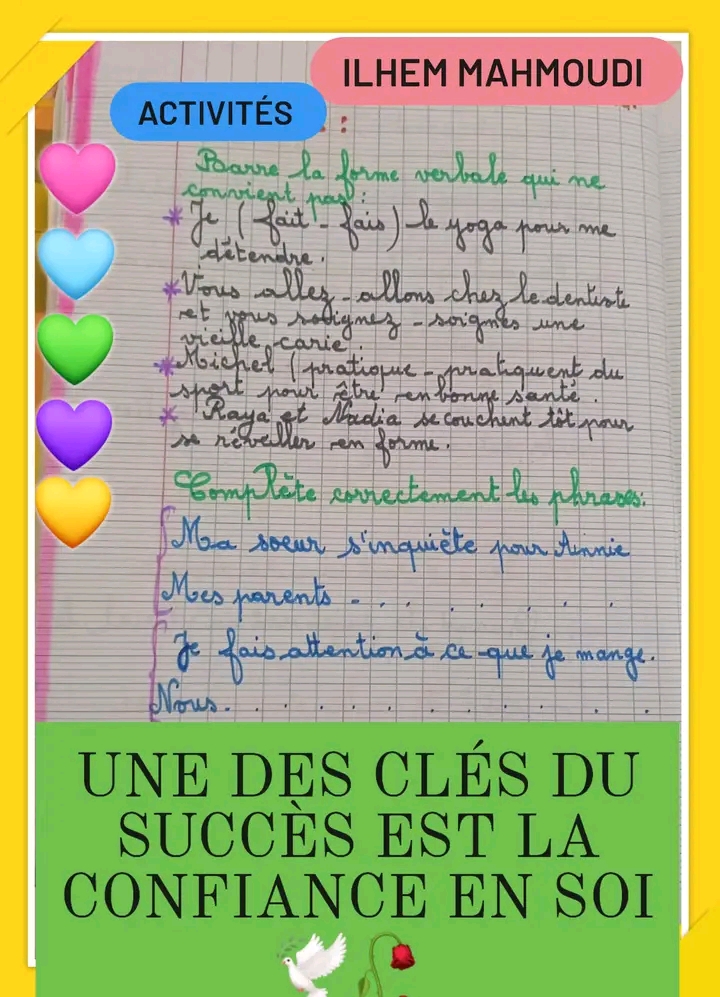 ILHEM MAHMOUDI
ACTIVITÉS
:
Barre la forme verbale qui ne
convient pas :
* Je ( fait - fais) le yoga pour me
détendre.
* Vous allez - allons chez le dentiste
et vous soignez - soignes une
vieille carie.
* Michel ( pratique - pratiquent du
sport pour être en bonne santé.
* Raya et Nadia se couchent tôt pour
se réveiller en forme.
Complète correctement les phrases:
Ma soeur s'inquiète pour Annie
Mes parents - . . . . . . .
Je fais attention à ce que je mange.
Nous. . . . . . . . . .
UNE DES CLÉS DU
SUCCÈS EST LA
CONFIANCE EN SOI